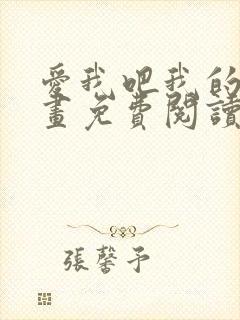 愛我吧我的
畫免費閱讀
張馨予